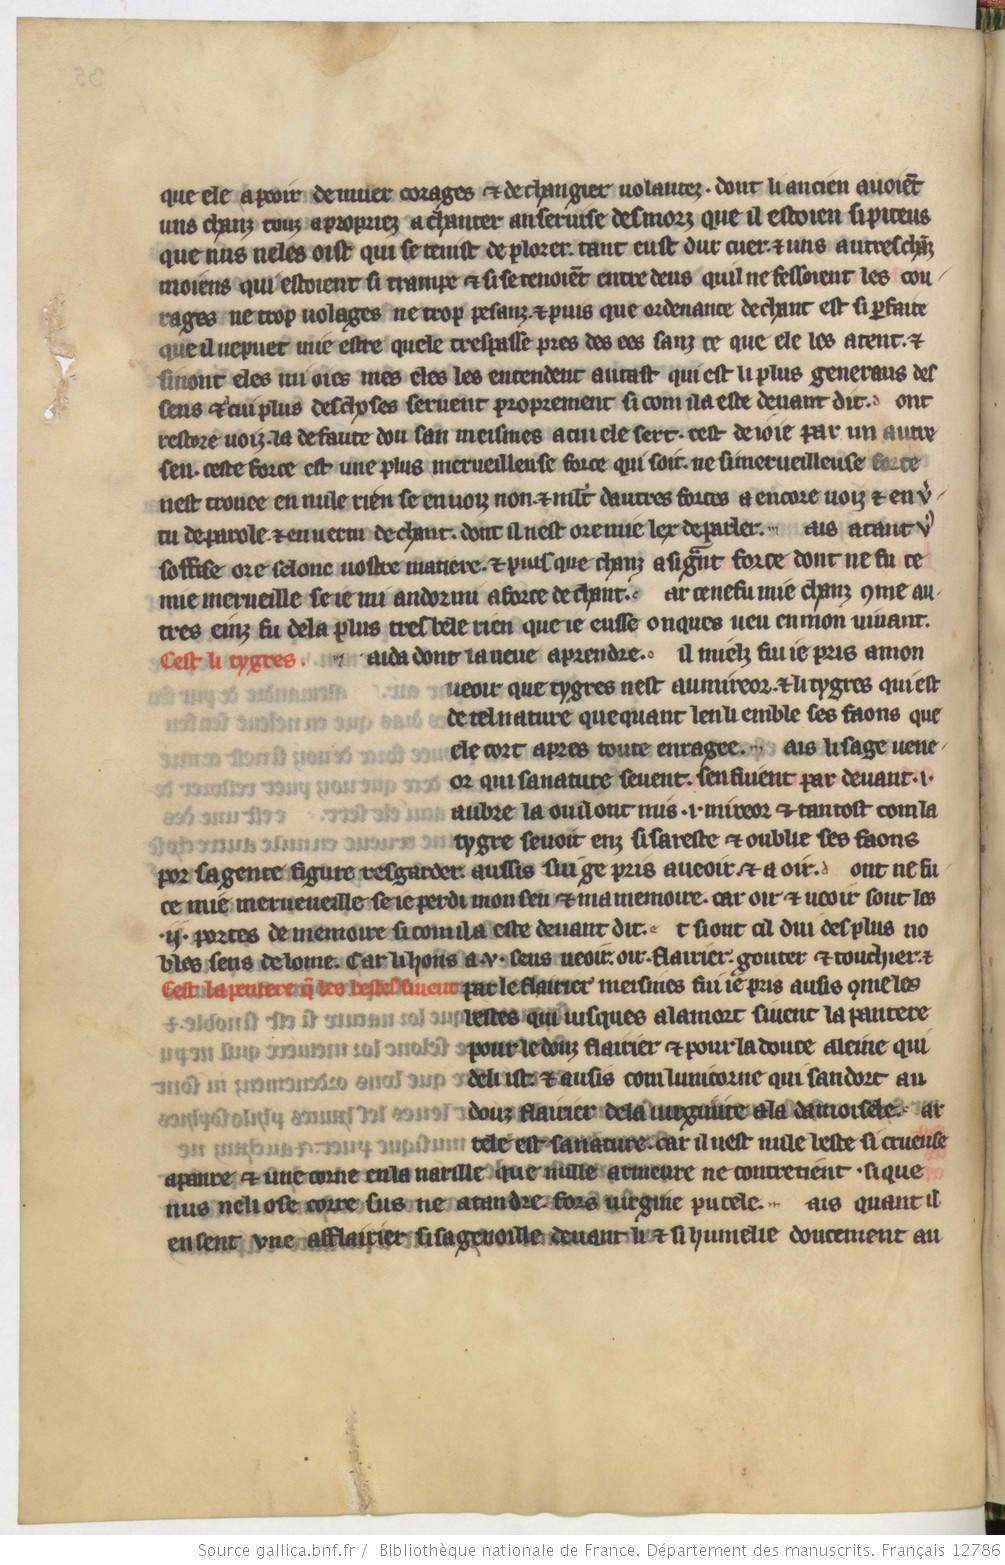 que ele a pooir de muer corages ⁊ de changier uolantez. dont li ancien auoiẽt
uns chanz touz apropriez a chanter au seruise des morz que il estoien si piteus
que nus ne les oist qui se tenist de plorer. tant eust dur cuer. ⁊ uns autres chãz
moiens qui estoient si trampe ⁊ si se tenoiẽt entre deus quil ne fessoient les cou
rages ne trop uolages ne trop pesanz. ⁊ puis que ordenance de chant est si ꝑfaite
que il ne puet mie estre quele trespasse pres des ees sanz ce que ele les atent. ⁊
si nont eles mi oies mes eles les entendent autast qui est li plus generaus des
sens ⁊ cui plus des choses seruent proprement si com il a este deuant dit. ont
restore uoiz. la defaute dou san meismes a cui ele sert. cest de ioie par un autre
sen. ceste force est une plus merueilleuse force qui soit. ne si merueilleuse force
nest trouee en nule rien se en uoiz non. ⁊ mlt dautres forces a encore uoiz ⁊ en ũ
tu de parole. ⁊ en uertu de chant. dont il nest ore mie lex de parler. ais atant ũ
soffise ore selonc nostre matiere. ⁊ puis que chanz a si gñt force dont ne fu ce
mie merueille se ie mi andormi a force de chant. ar ce ne fu mie chanz ꝯme au
tres einz fu de la plus tres bele rien que ie eusse onques ueu en mon uiuant.
Cest li tygres. aida dont la ueue a prendre. il mielz fui ie pris a mon
ueoir que tygres nest au mireor. ⁊ li tygres qui est
de tel nature que quant len li emble ses faons que
ele cort apres toute enragee. ais li sage uene
or qui sa nature seuent. sen fuient par deuant .i.
aubre la ou il ont mis .i. mireor ⁊ tantost com la
tygre se uoit enz si sareste ⁊ oublie ses faons
por sa gente figure resgarder. aussis fui ge pris au ueoir. ⁊ a oir. ont ne fu
ce mie merueueille se ie perdi mon sen ⁊ ma memoire. car oir ⁊ ueoir sont les
.ij. portes de memoire si com il a este deuant dit. t si ont cil dui des plus no
bles sens de lome. Car li hons a .v. sens ueoir. oir. flairier. gouter ⁊ touchier. ⁊
Cest la pentere q̃ les bestes siuent par le flairier meismes fui ie pris ausis ꝯme les
bestes qui iusques a la mort siuent la pantere
pour le douz flairier ⁊ pour la douce aleine qui
deli ist. ⁊ ausis com lunicorne qui sandort au
douz flairier de la uirginite a la damoisele. ar
tele est sa nature. car il nest nule beste si crueuse
a panre ⁊ une corne en la narille que nulle armeure ne contretient. si que
nus ne li ose corre sus ne atandre. fors uirgine pucele. ais quant il
en sent vne afflairier si sagenoille deuant li ⁊ si humelie doucement au
Source gallica.bnf.fr / Bibliothèque nationale de France. Département des manuscrits. Français 12786